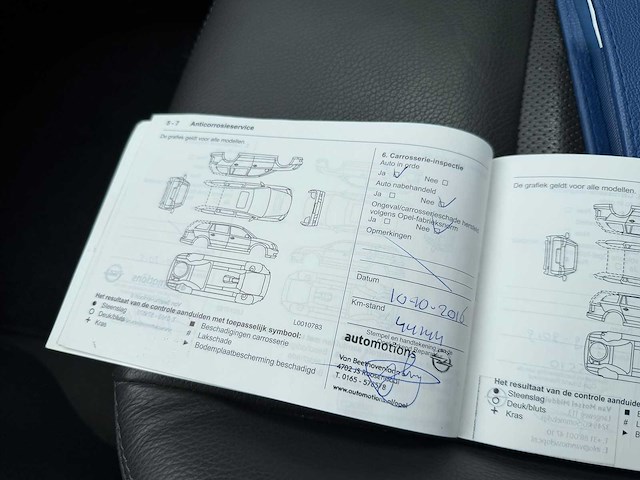 8 - 7 Anticorrosieservice
De grafiek geldt voor alle modellen.
L0010783
Het resultaat van de controle aanduiden met toepasselijk symbool:
Steenslag
Deuk/bluts
+ Kras
Beschadigingen carrosserie
# Lakschade
Bodemplaatbescherming beschadigd
6. Carrosserie-inspectie
Auto in orde
Ja Nee
Auto nabehandeld
Ja Nee
Ongeval/carrosserieschade
volgens Opel-fabrieksnorm
Ja Nee
Opmerkingen
Datum 10-10-2016
Km-stand
Stempel en handtekening van de
automotions
Van Beethovenlaan
4702 JS Roosendaal
T. 0165 -
www.automotions.nl/opel
De grafiek geldt voor alle modellen.
Het resultaat van de controle aanduiden
Steenslag
Deuk/bluts
+ Kras
#